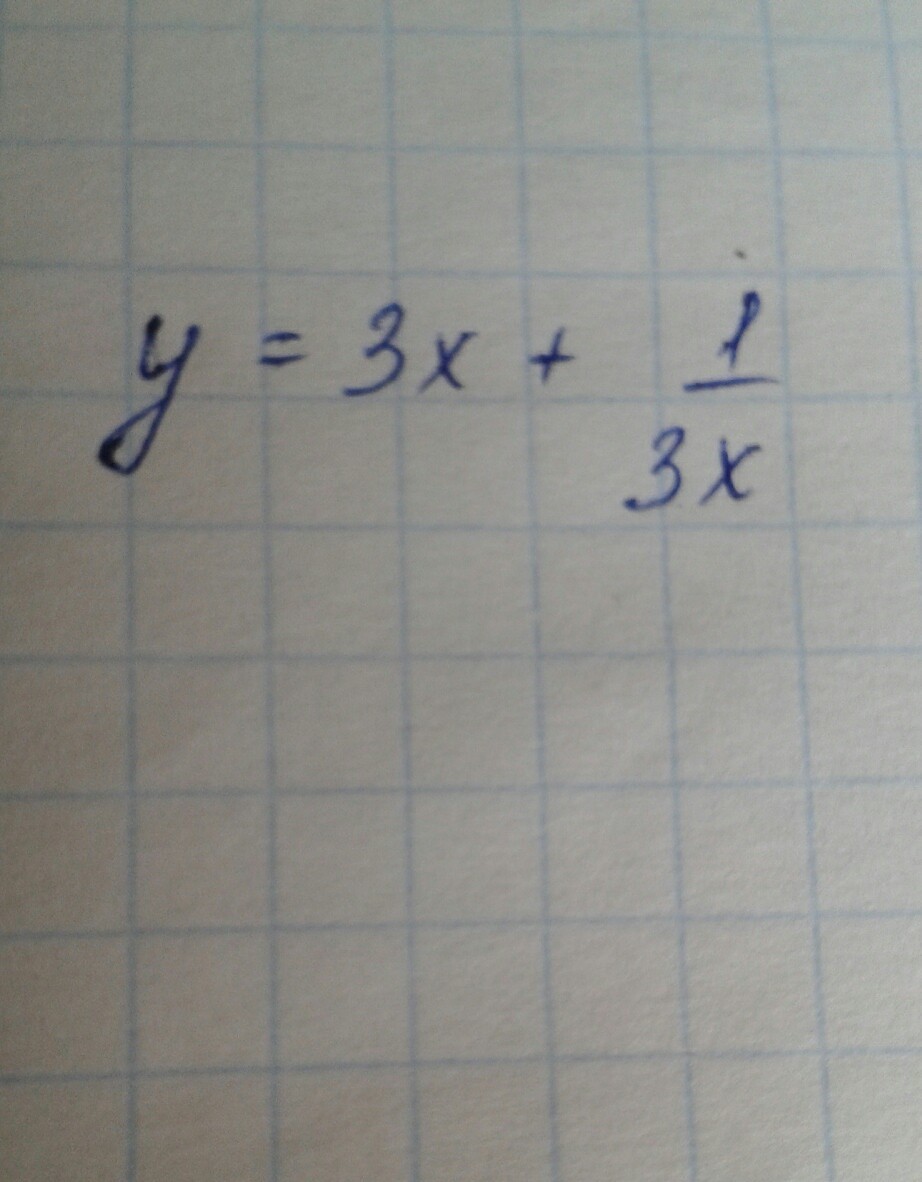 y = 3x + 1/3x